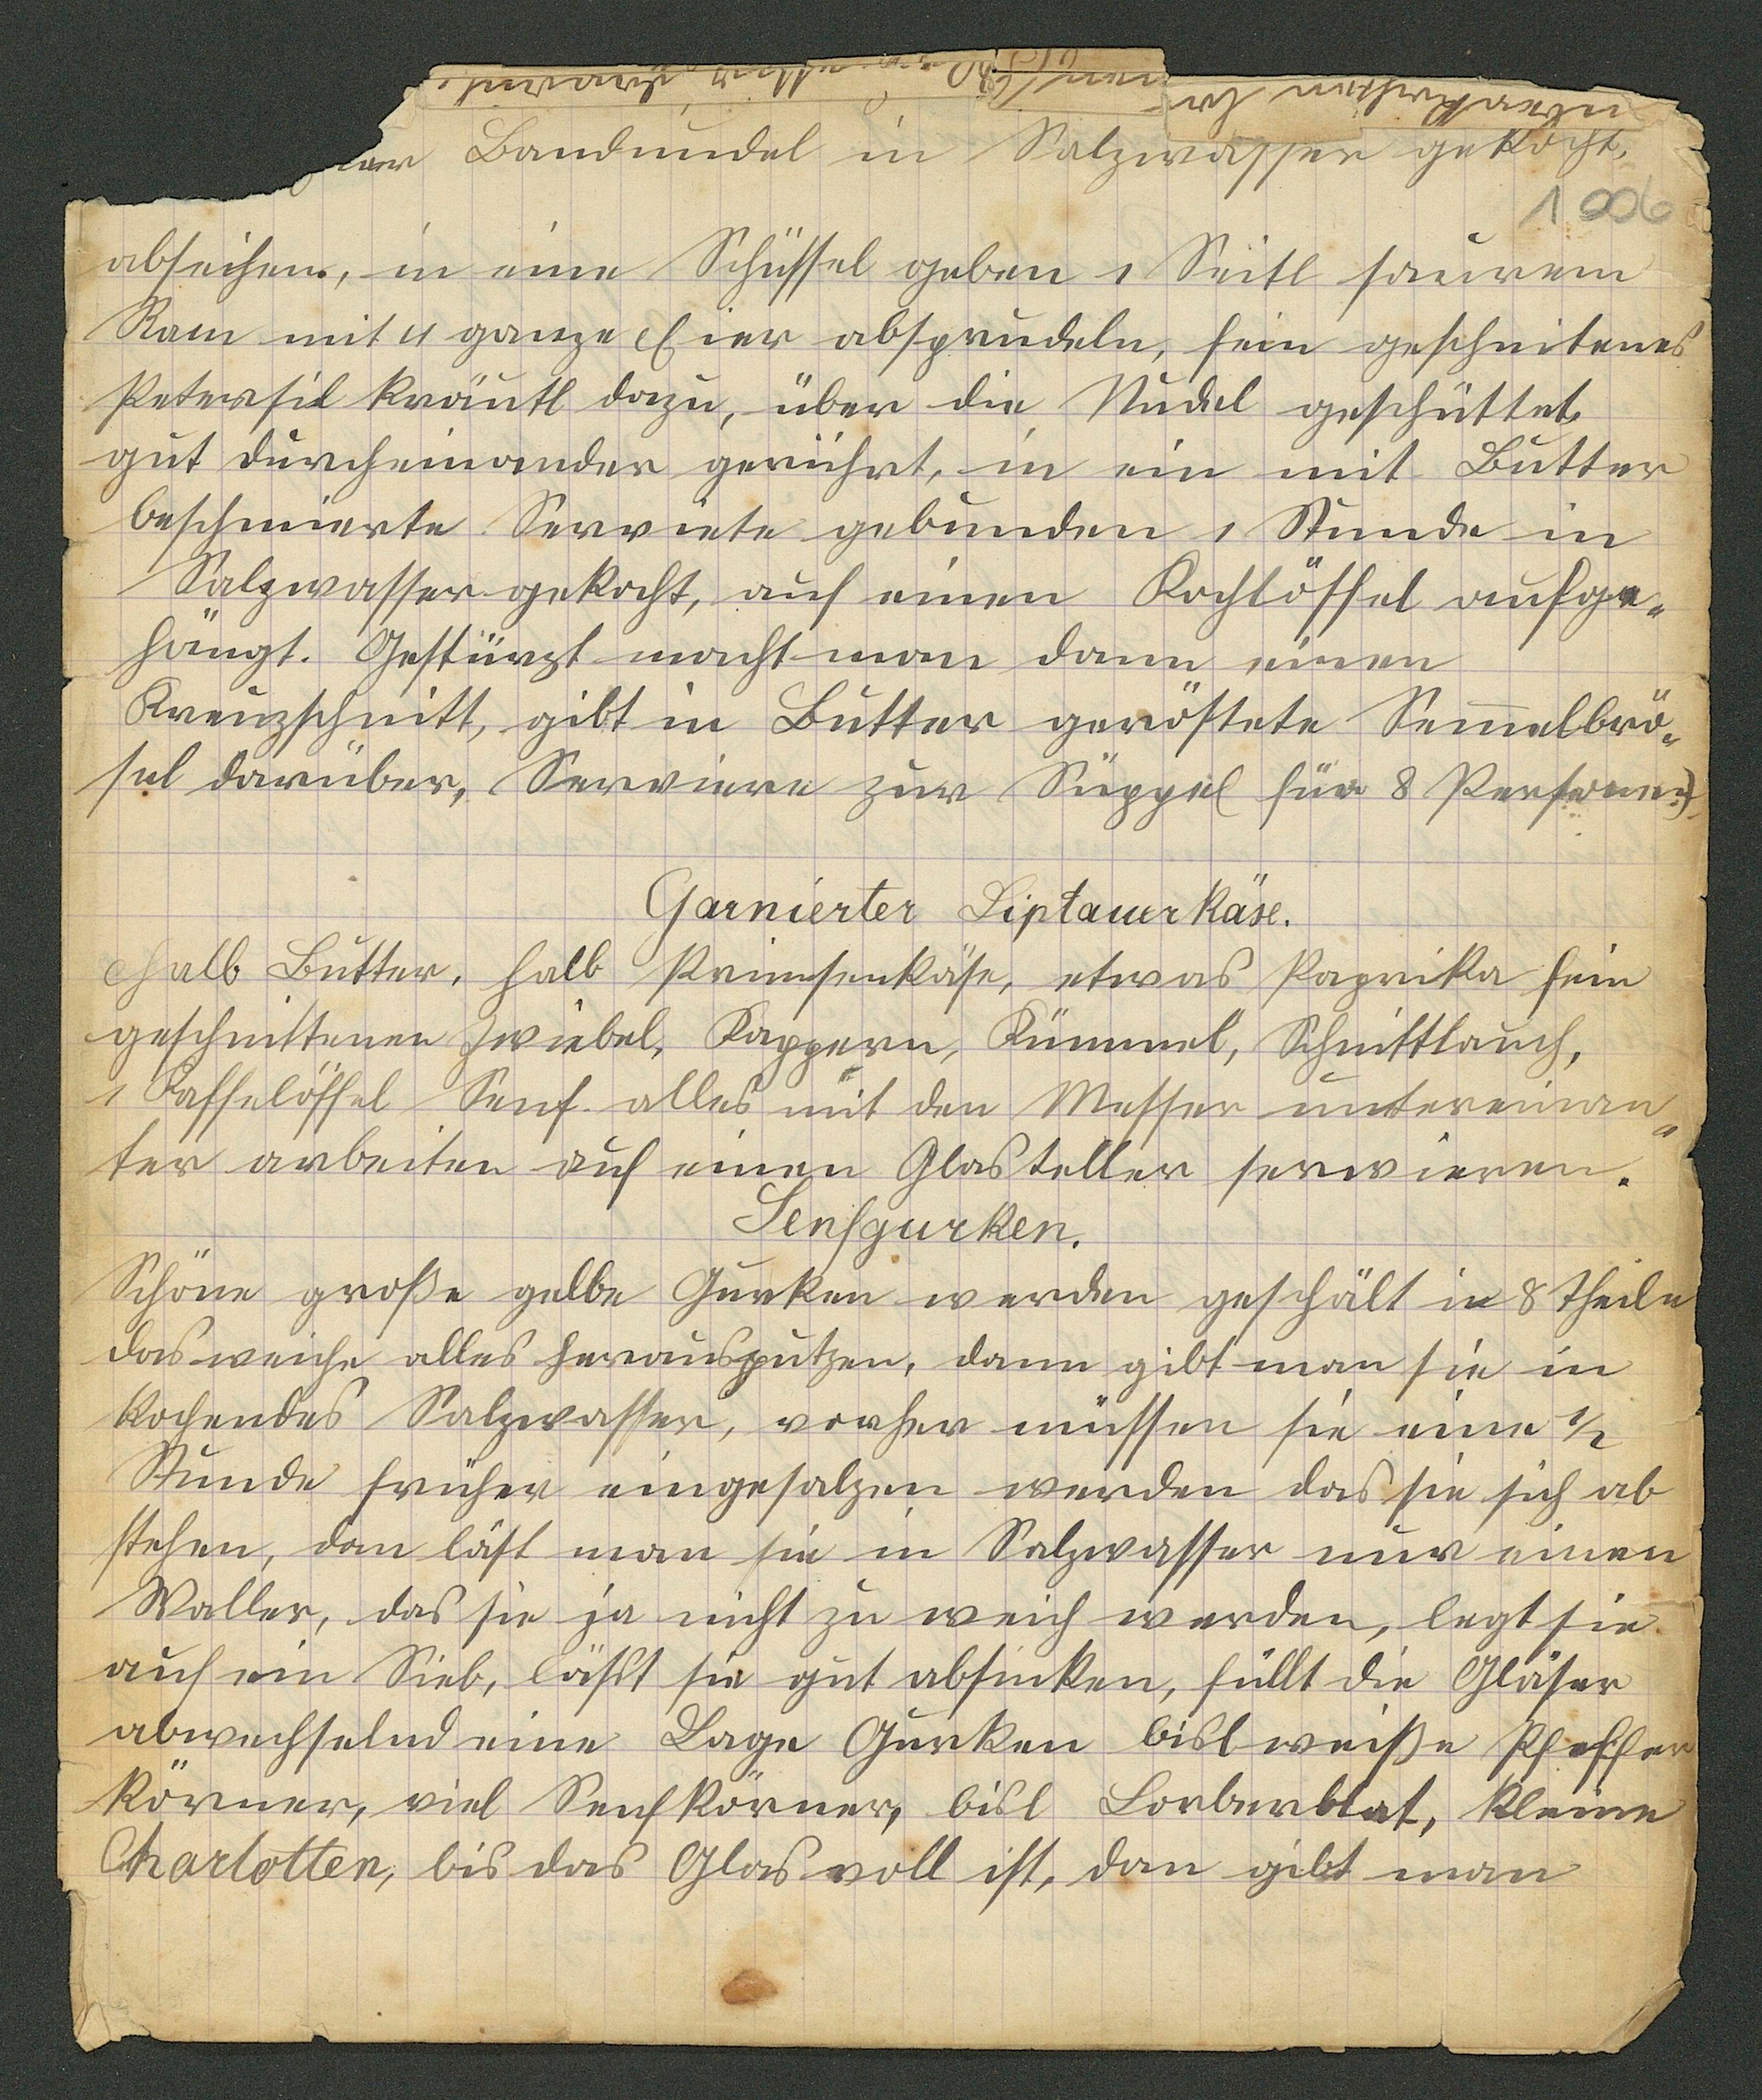 Bandnudel in Salzwasser gekocht,
1006
abseihen, in eine Schüssel geben 1 Seitl saurem
Ram mit 4 ganze Eier absprudeln, fein geschnitenes
Petersil kräutl dazu, über die Nudel geschüttet
gut durcheinander gerührt, in ein mit Butter
beschmierte Serviete gebunden 1 Stunde in
Salzwasser gekocht, auf einen Kochlöffel aufge„
hängt. Gestürzt macht man dann einen
Kreuzschnitt, gibt in Butter geröstete Semmelbrö„
sel darüber, Serviere zur Suppe (für 8 Personen)
Garnierter Liptauerkäse.
Halb Butter, halb Primsenkäse, etwas Paprika fein
geschnittenen Zwiebel, Kappern, Kümmel, Schnittlauch,
1 Kaffelöffel Senf alles mit den Messer untereinan„
ter arbeiten auf einen Glasteller serwieren.
Senfgurken.
Schöne große gelbe Gurken werden geschält in 8 Theile
das weiche alles herausputzen, dann gibt man sie in
kochendes Salzwasser, vorher müssen sie eine 1/2
Stunde früher eingesalzen werden das sie sich ab
stehen, dan läst man sie in Salzwasser nur einen
Waller, das sie ja nicht zu weich werden, legt sie
auf ein Sieb, läßt sie gut absinken, füllt die Gläser
abwechselnd eine Lage Gurken bisl weiße Pfeffer
körner, viel Senfkörner, bisl Lorberblat, kleine
Charlotten, bis das Glas voll ist, dan gibt man